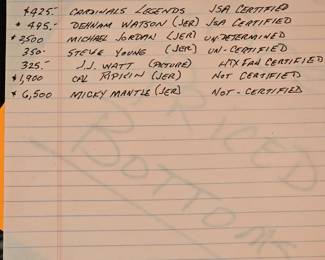 $425.- CARDINALS LEGENDS JSA CERTIFIED
* 495.- DEHNAM WATSON (JER) JSA CERTIFIED
$3500 MICHAEL JORDAN (JER) UN-DETERMINED
350.- STEVE YOUNG (JER) UN-CERTIFIED
325.- J.J. WATT (PICTURE) HTX FAN CERTIFIED
$1,900 CAL RIPKIN (JER) NOT CERTIFIED
$6,500 MICKY MANTLE (JER) NOT-CERTIFIED
PRICED
BOTTOMS